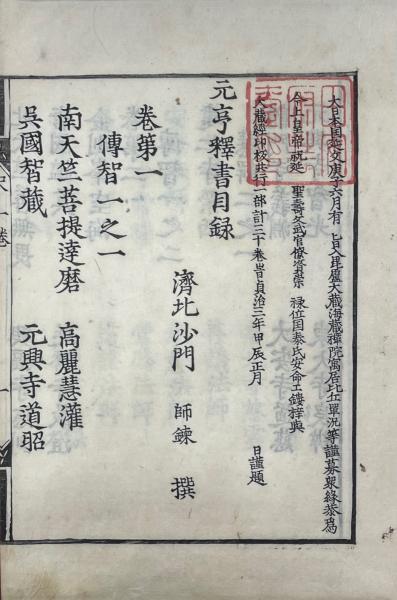 大日本国延文庚子六月有 旨入毘盧大藏海藏禪院寓居比丘單況等謹募衆緣恭爲
今上皇帝祝延 聖壽文武官僚資崇 禄位国泰民安命工鏤梓與
大藏經印板共行一部計三十卷旹貞治三年甲辰正月 日謹題
元亨釋書目録
濟北沙門 師鍊 撰
卷第一
傳智一之一
南天竺菩提達磨 高麗慧灌
呉國智藏 元興寺道昭